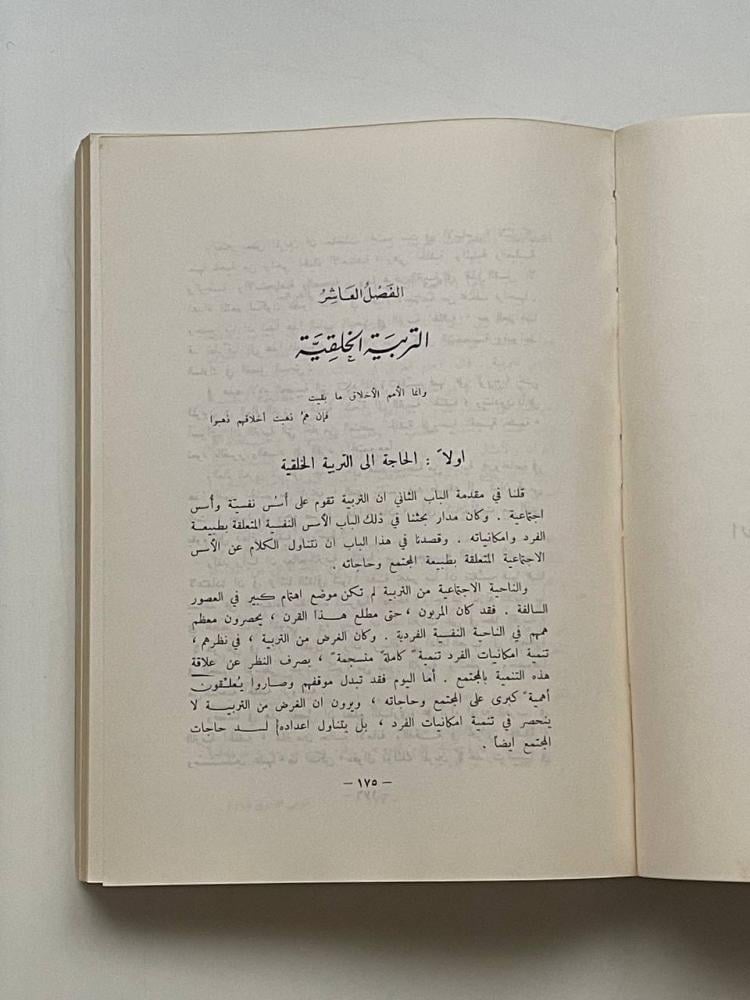 الفَصْلُ العَاشِرُ
التربيَة الخلقيَّة
وانما الأمم الأخلاق ما بقيت
فإن همُ ذهبت أخلاقهم ذهبوا
اولاً : الحاجة الى التربية الخلقية
قلنا في مقدمة الباب الثاني ان التربية تقوم على أُسُس نفسيّة وأسس
اجتماعية . وكان مدار بحثنا في ذلك الباب الأسس النفسية المتعلقة بطبيعة
الفرد وامكانياته . وقصدنا في هذا الباب ان نتناول الكلام عن الأسس
الاجتماعية المتعلقة بطبيعة المجتمع وحاجاته .
والناحية الاجتماعية من التربية لم تكن موضع اهتمام كبير في العصور
السالفة . فقد كان المربون ، حتى مطلع هذا القرن ، يحصرون معظم
همهم في الناحية النفسية الفردية . وكان الغرض من التربية ، في نظرهم ،
تنمية امكانيات الفرد تنميةً كاملةً منسجمةً ، بصرف النظر عن علاقة
هذه التنمية بالمجتمع . أما اليوم فقد تبدل موقفهم وصاروا يُعلـِّقون
أهميةً كبرى على المجتمع وحاجاته ، ويرون ان الغرض من التربية لا
ينحصر في تنمية امكانيات الفرد ، بل يتناول اعداده لسد حاجات
المجتمع ايضاً .
— ١٧٥ —